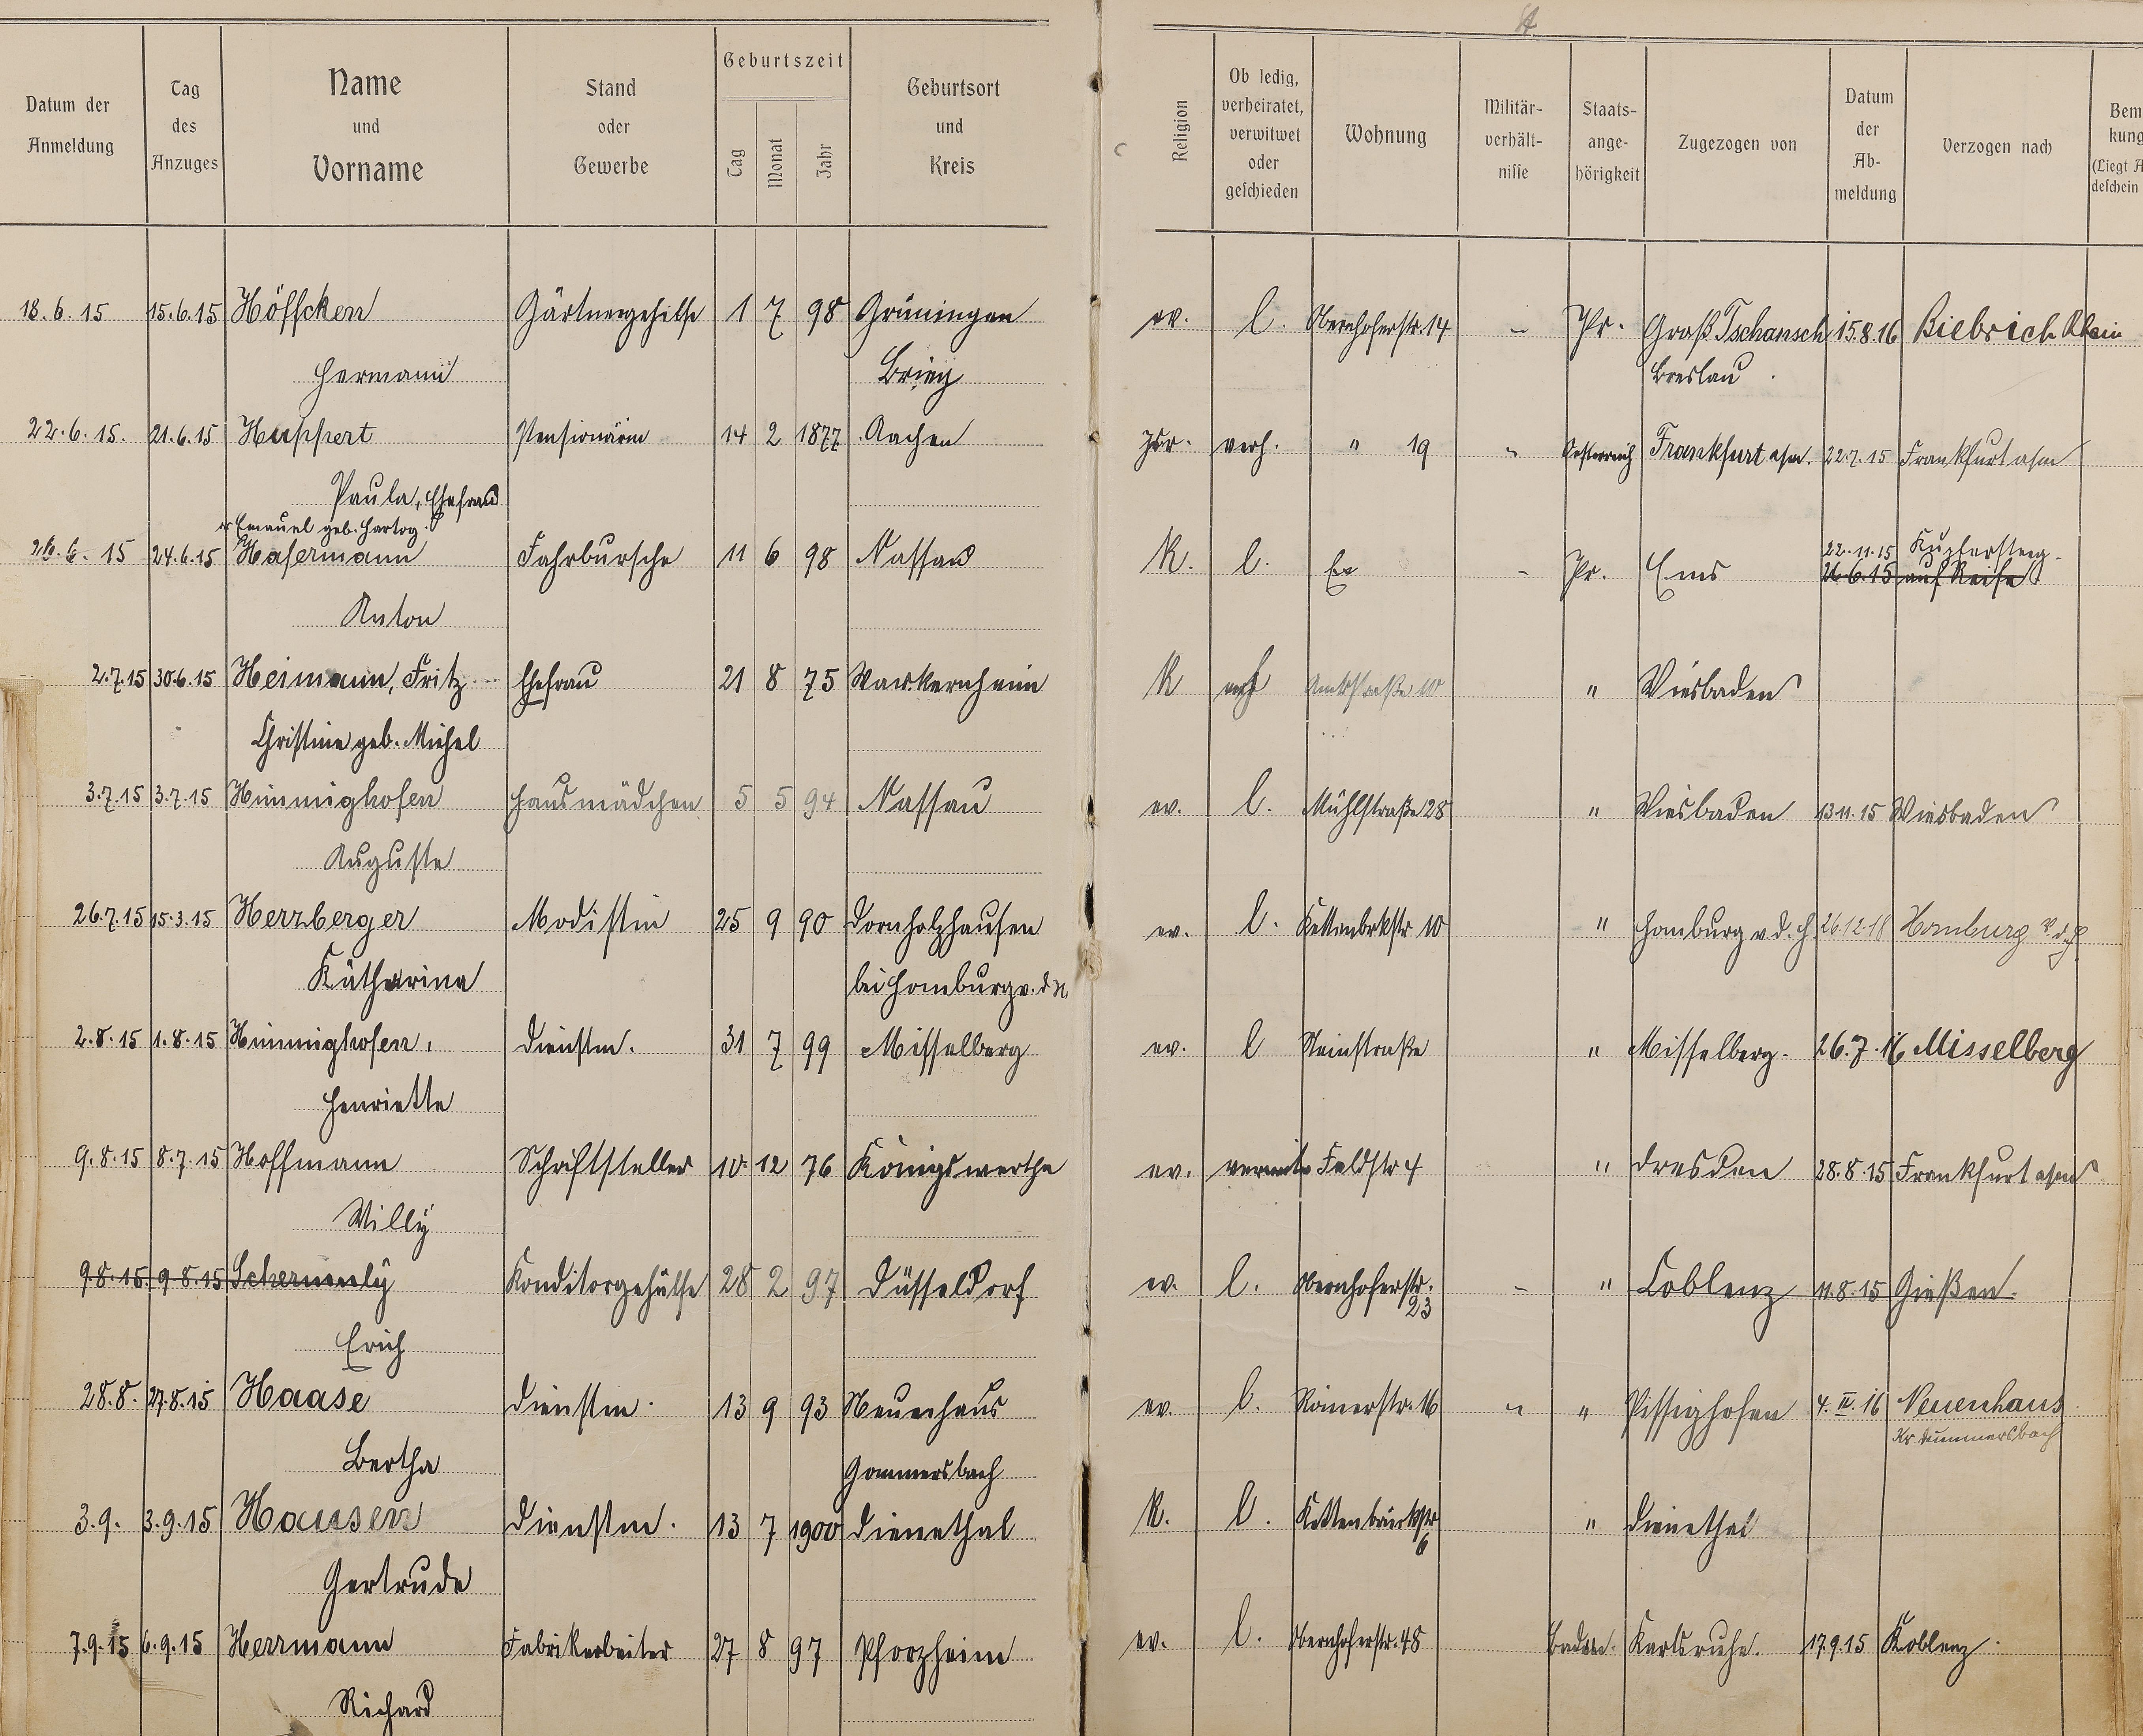 H
Datum der Anmeldung
Tag des Anzuges
Name und Vorname
Stand oder Gewerbe
Geburtszeit
Tag
Monat
Jahr
Geburtsort und Kreis
Religion
Ob ledig, verheiratet, verwitwet oder geschieden
Wohnung
Militär-verhält-nisse
Staats-ange-hörigkeit
Zugezogen von
Datum der Ab-meldung
Verzogen nach
Bem
kung
(Liegt A
deschein
18.6.15 15.6.15 Höffcken Gärtnergehilfe 1 7 98 Grüningen ev. l. Obernhoferstr. 14 - Pr. Groß Tschansch 15.8.16 Biebrich Rhein
Hermann Brieg Breslau
22.6.15. 21.6.15 Huppert Pensionärin 14 2 1877 Aachen Isr. verh. " 19 " Oesterreich Frankfurt a/m. 22.7.15 Frankfurt a/m
Paula, Ehefrau
Emanuel geb. Hartog.
26.6.15 24.6.15 Hafermann Fahrbursche 11 6 98 Nassau K. l. - Pr. Ems 22.11.15
26.6.15 auf Reise
Anton
2.7.15 30.6.15 Heimann, Fritz Ehefrau 21 8 75 Wackernheim K verh Amtstraße 10 " Wiesbaden
Christine geb. Michel
3.7.15 3.7.15 Himmighofen Hausmädchen 5 5 94 Nassau ev. l. Mühlstraße 28 " Wiesbaden 13.11.15 Wiesbaden
Auguste
26.7.15 15.3.15 Herzberger Modistin 25 9 90 Dornholzhausen ev. l. Kettenbrkstr 10 " Homburg v.d.H. 26.12.18 Homburg v.d.H.
Katharina bei Homburg v.d.H.
2.8.15 1.8.15 Himmighofen, Dienstm. 31 7 99 Misselberg ev. l Steinstraße " Misselberg. 26.7.16 Misselberg
Henriette
9.8.15 8.7.15 Hoffmann Schriftsteller 10 12 76 Königswertha ev. Feldstr 4 " Dresden 28.8.15 Frankfurt a/m
Willÿ
9.8.15. 9.8.15 Schermulÿ Konditorgehülfe 28 2 97 Düsseldorf ev. l. Obernhoferstr. 23 - " Coblenz 11.8.15 Gießen.
Erich
28.8. 27.8.15 Haase Dienstm. 13 9 93 Neuenhaus ev. l. Römerstr. 16 " " Pissighofen 4.II.16 Neuenhaus
Kr. Gummersbach
Bertha Gommersbach
3.9. 3.9.15 Hausen Dienstm. 13 7 1900 Dienethal K. l. Kettenbrückstr 6 " Dienethal
Gertrude
7.9.15 6.9.15 Herrmann Fabrikarbeiter 27 8 97 Pforzheim ev. l. Obernhoferstr. 48 Baden. Karlsruhe. 17.9.15 Koblenz.
Richard